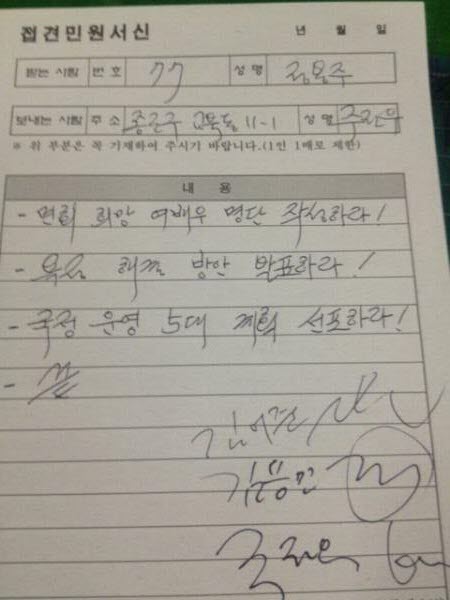 접견민원서신 년 월 일
받는 사람 번호 77 성명 정봉주
보내는 사람 주소 종로구 교북동 11-1 성명 주진우
※ 위 부분은 꼭 기재하여 주시기 바랍니다.(1인 1매로 제한)
내용
- 면회 희망 여배우 명단 작성하라!
- 욕실 해결 방안 발표하라!
- 국정 운영 5대 계획 선포하라!
- 끝
김어준
김용민
주진우